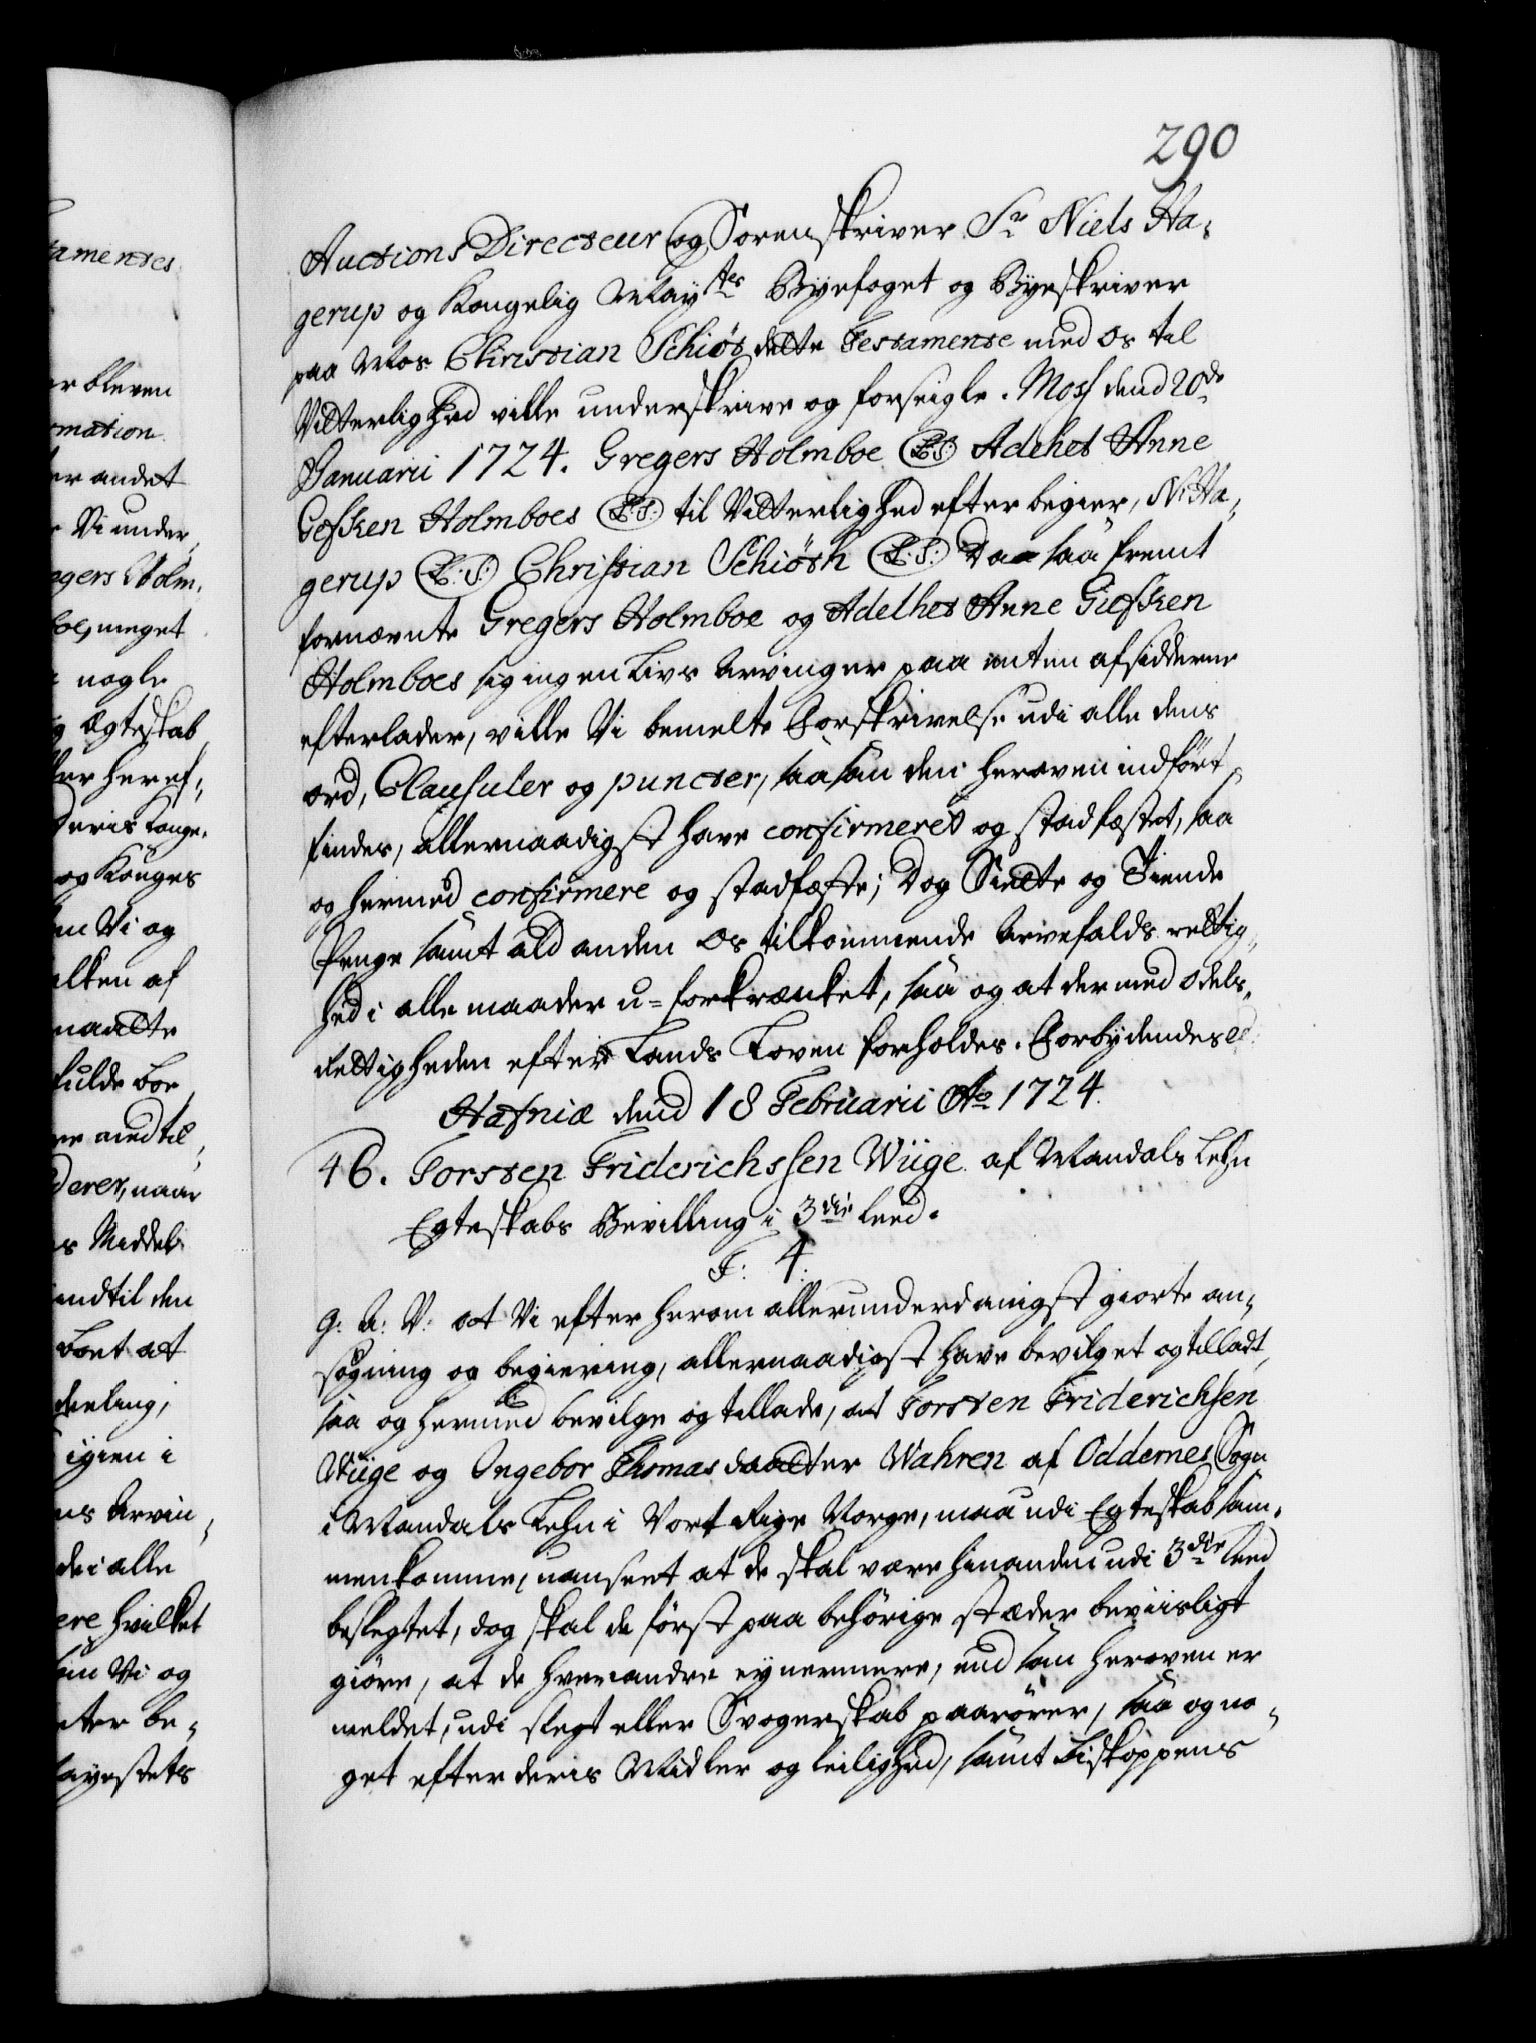 290
Auctions Directeur og Sorenskriver Sr Niels Ha,
gerup og Kongelig Maytes Byefoget og Byeskriver
paa Mos Christian Schiøt dette Testamente med os til
Vitterlighed ville underskrive og forseigle. Moss dend 20de
Januarii 1724. Gregers Holmboe (L.S.) Adehet Anne
Giefken Holmboes (L.S.) til Vitterlighed efter begier, N. Ha,
gerup (L.S.) Christian Schiøth (L.S.) Da saa fremt
fornævnte Gregers Holmboe og Adelhet Anne Giefken
Holmboes sig ingen Livs Arvinger paa enten afsidderne
efterlader, ville Vi bemelte Forskrivelse udi alle dens
ord, Clausuler og puncter, saasom den heroven indført
findes, allernaadigst have confirmeret og stadfæstet, saa
og hermed confirmere og stadfæste; Dog Siette og Tiende
Penge samt ald anden Os tilkommende Arvefalds rettig,
hed i alle maader u=forkrænket, saa og at der med Odels,
rettigheden efter Lands Loven forholdes. Forbydendes
Hafniæ dend 18 Februarii Ao 1724.
46. Torsten Friderichssen Wiige af Mandals Lehn
Egteskabs Bevilling i 3die leed.
F: 4.
G: A: V: at Vi efter herom allerunderdanigst giorte an,
søgning og begiering, allernaadigst have bevilget og tilladt,
saa og hermed bevilge og tillade, at Torsten Friderichsen
Wiige og Ingebor Thomas daatter Wahren af Oddernes Sogn
i Mandals Lehn i Vort Rige Norge, maa udi Egteskab sam,
menkomme, uanseet at de skal være hinanden udi 3die leed
beslegtet, dog skal de først paa behørige stæder beviisligt
giøre, at de hverandre ey nermere, end som heroven er
meldet, udi slegt eller Svogerskab paarører, saa og no,
get efter deris Midler og leilighed, samt Biskoppens